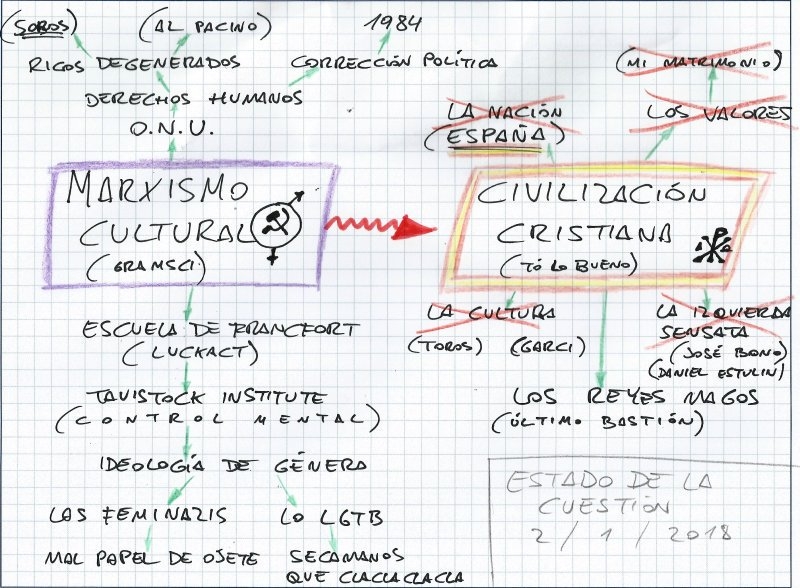 (SOROS)
(AL PACINO)
1984
RICOS DEGENERADOS
CORRECCIÓN POLÍTICA
DERECHOS HUMANOS
O.N.U.
(MI MATRIMONIO)
LA NACIÓN
(ESPAÑA)
LOS VALORES
MARXISMO
CULTURAL
(GRAMSCI)
CIVILIZACIÓN
CRISTIANA
(TÓ LO BUENO)
ESCUELA DE FRANCFORT
(LUCKACT)
TAVISTOCK INSTITUTE
(CONTROL MENTAL)
IDEOLOGÍA DE GÉNERA
LAS FEMINAZIS
LO LGTB
MAL PAPEL DE OJETE
SECAMANOS
QUE CLACLACLACLA
LA CULTURA
(TOROS)
(GARCI)
LA IZQUIERDA
SENSATA
(JOSÉ BONO)
(DANIEL ESTULIN)
LOS REYES MAGOS
(ÚLTIMO BASTIÓN)
ESTADO DE LA
CUESTIÓN
2 / 1 / 2018